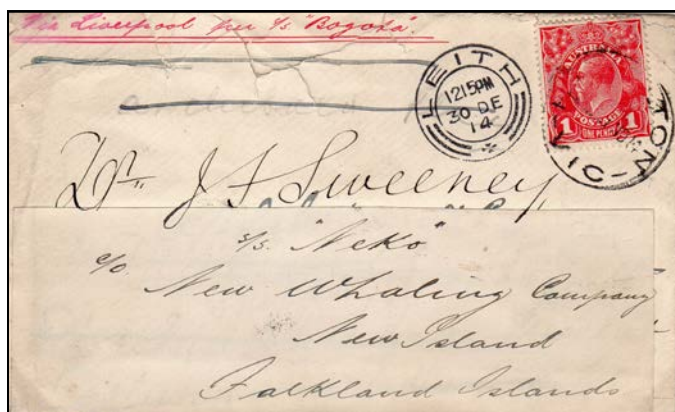 Via Liverpool per s/s "Bogota".
LEITH
12 15PM
30 DE
14
AUSTRALIA
POSTAGE
1 ONE PENNY 1
TON-VIC
Dr J F Sweeney
s/s. "Neko"
c/o
New Whaling Company
New Island
Falkland Islands